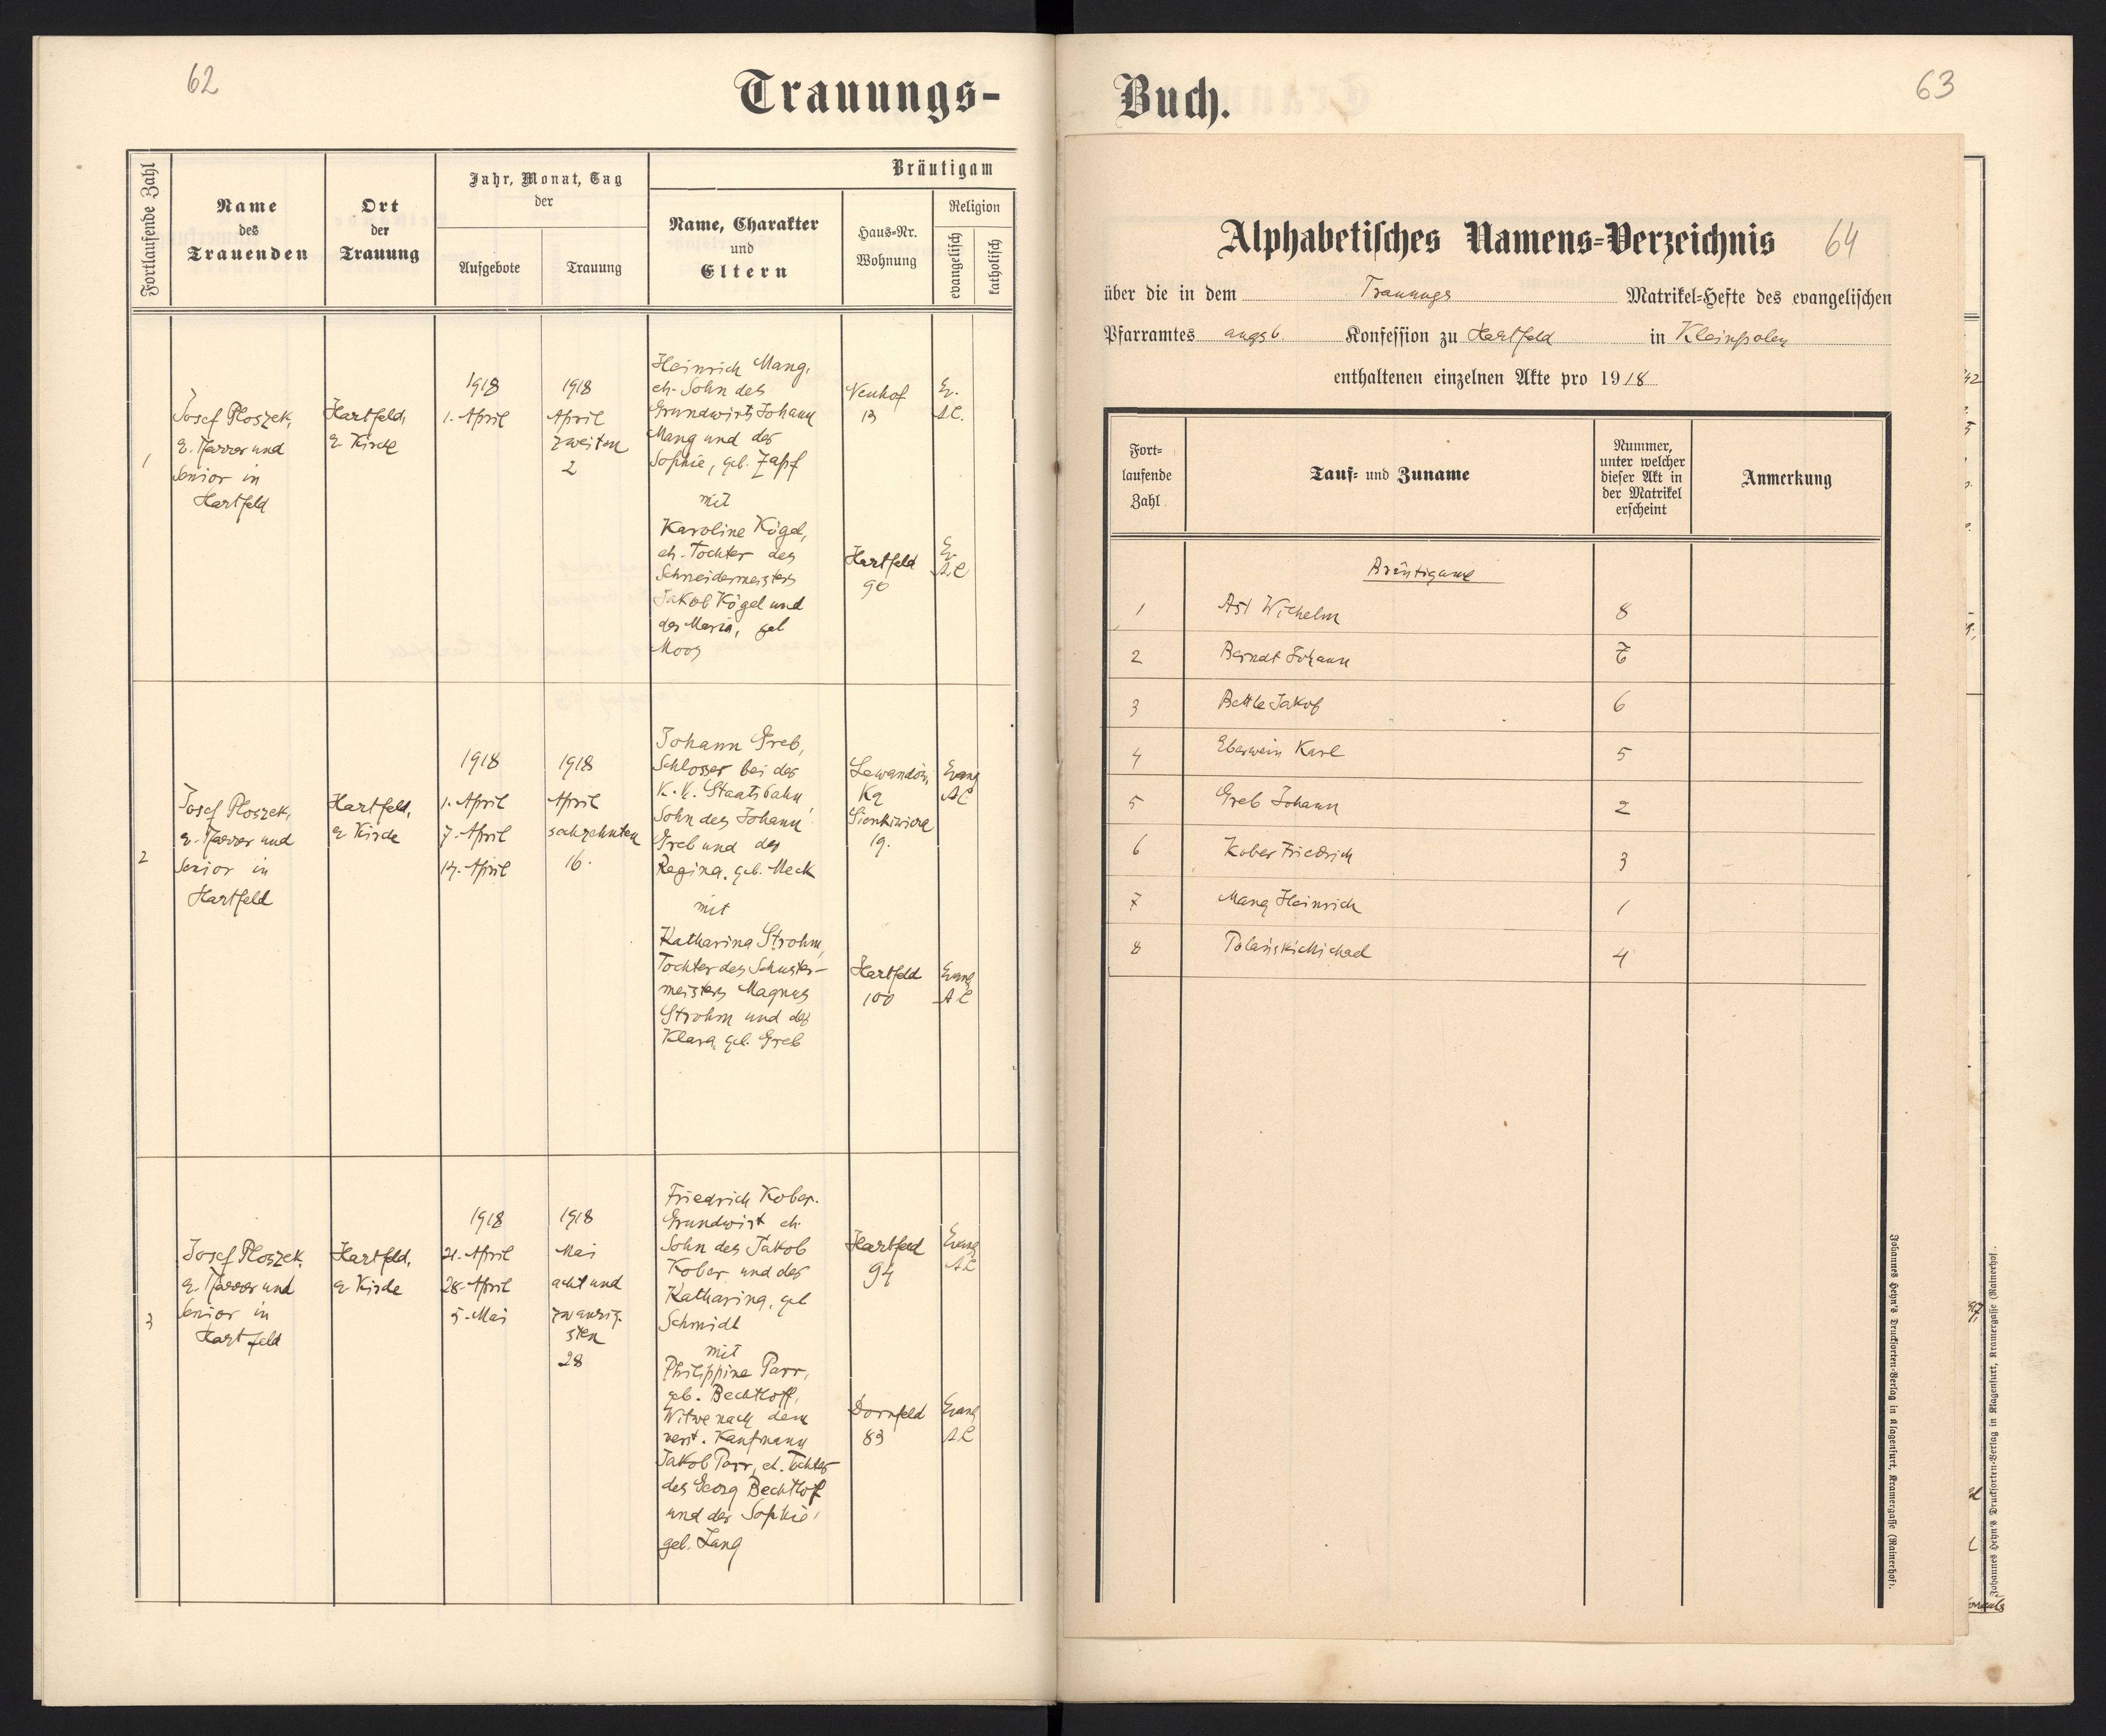 62
Trauungs-
Fortlaufende Zahl
Name
des
Trauenden
Ort
der
Trauung
Jahr, Monat, Tag
der
Aufgebote
Trauung
Bräutigam
Name, Charakter
und
Eltern
Haus-Nr.
Wohnung
Religion
evangelisch
katholisch
1
Josef Ploszek,
e. Pfarrer und
Senior in
Hartfeld
Hartfeld,
e. Kirche
1918
1. April
1918
April
zweiten
2
Heinrich Mang,
eh. Sohn des
Grundwirts Johann
Mang und der
Sophie, geb. Zapf
mit
Karoline Kögel,
eh. Tochter des
Schneidermeisters
Jakob Kögel und
der Maria, geb
Moos
Neuhof
13
Hartfeld
90
Ev.
A.C.
Ev.
A.C
2
Josef Ploszek,
e. Pfarrer und
Senior in
Hartfeld
Hartfeld,
e. Kirche
1918
1. April
7. April
14. April
1918
April
sechzehnten
16.
Johann Greb,
Schlosser bei der
K. K. Staatsbahn,
Sohn des Johann
Greb und der
Regina, geb. Meck
mit
Katharina Strohm,
Tochter des Schuster-
meisters Magnus
Strohm und der
Klara, geb. Greb
19.
Hartfeld
100
Evang
AC
Evang
A C
3
Josef Ploszek,
e. Pfarrer und
Senior in
Hartfeld
Hartfeld,
e. Kirche
1918
21. April
28. April
5. Mai
1918
Mai
acht und
zwanzig-
sten
28
Friedrich Kober.
Grundwirt eh.
Sohn des Jakob
Kober und der
Katharina, geb
Schmidt
mit
Philippine Parr,
geb. Bechtloff,
Witwe nach dem
verst. Kaufmann
Jakob Parr, eh. Tochter
des Georg Bechtlof
und der Sophie,
geb. Lang
Hartfeld
94
Dornfeld
83
Evang
A.C
Evang
A.C
Buch.
63
Alphabetisches Namens-Verzeichnis
64
über die in dem Trauungs Matrikel-Hefte des evangelischen
Pfarramtes augsb. Konfession zu Hartfeld in Kleinpolen
enthaltenen einzelnen Akte pro 1918
Fort-
laufende
Zahl
Tauf- und Zuname
Nummer,
unter welcher
dieser Akt in
der Matrikel
erscheint
Anmerkung
Bräutigame
1 Ast Wilhelm 8
2 Berndt Johann 7
3 Bettle Jakob 6
4 Eberwein Karl 5
5 Greb Johann 2
6 Kober Friedrich 3
7 Mang Heinrich 1
8 Polański Michael 4
Johannes Heyn's Drucksorten-Verlag in Klagenfurt, Kramergasse (Rainerhof).
Johannes Heyn's Drucksorten-Verlag in Klagenfurt, Kramergasse (Rainerhof).